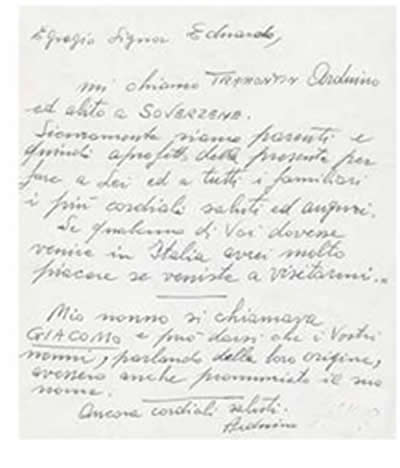 Egregio Signor Eduardo,
mi chiamo TRAMONTIN Arduino
ed abito a SOVERZENE.
Sicuramente siamo parenti e
quindi approfitto della presente per
fare a Lei ed a tutti i familiari
i più cordiali saluti ed auguri.
Se qualcuno di Voi dovesse
venire in Italia avrei molto
piacere se venisse a visitarmi.
Mio nonno si chiamava
GIACOMO e può darsi che i Vostri
nonni, parlando della loro origine,
avessero anche pronunciato il suo
nome.
Ancora cordiali saluti.
Arduino